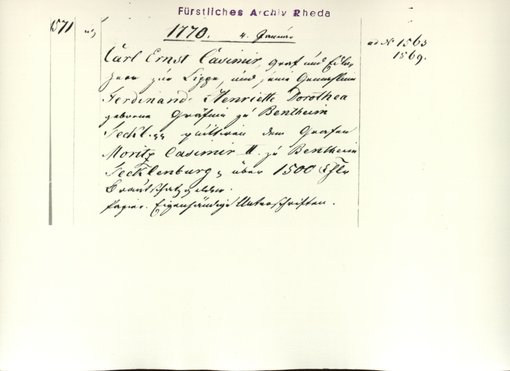 Fürstliches Archiv Rheda
1571
1770. 4. Januar
ad No 1563
1569.
Carl Ernst Casimir, Graf und Edler
Herr zur Lippe, und seine Gemahlinn
Ferdinand. Henriette Dorothea
geborene Gräfin zu Bentheim
Teckl. quittiren dem Grafen
Moritz Casimir II zu Bentheim
Tecklenburg, über 1500 Thlr
Brautschatzgelder.
Papier. Eigenhändige Unterschriften.